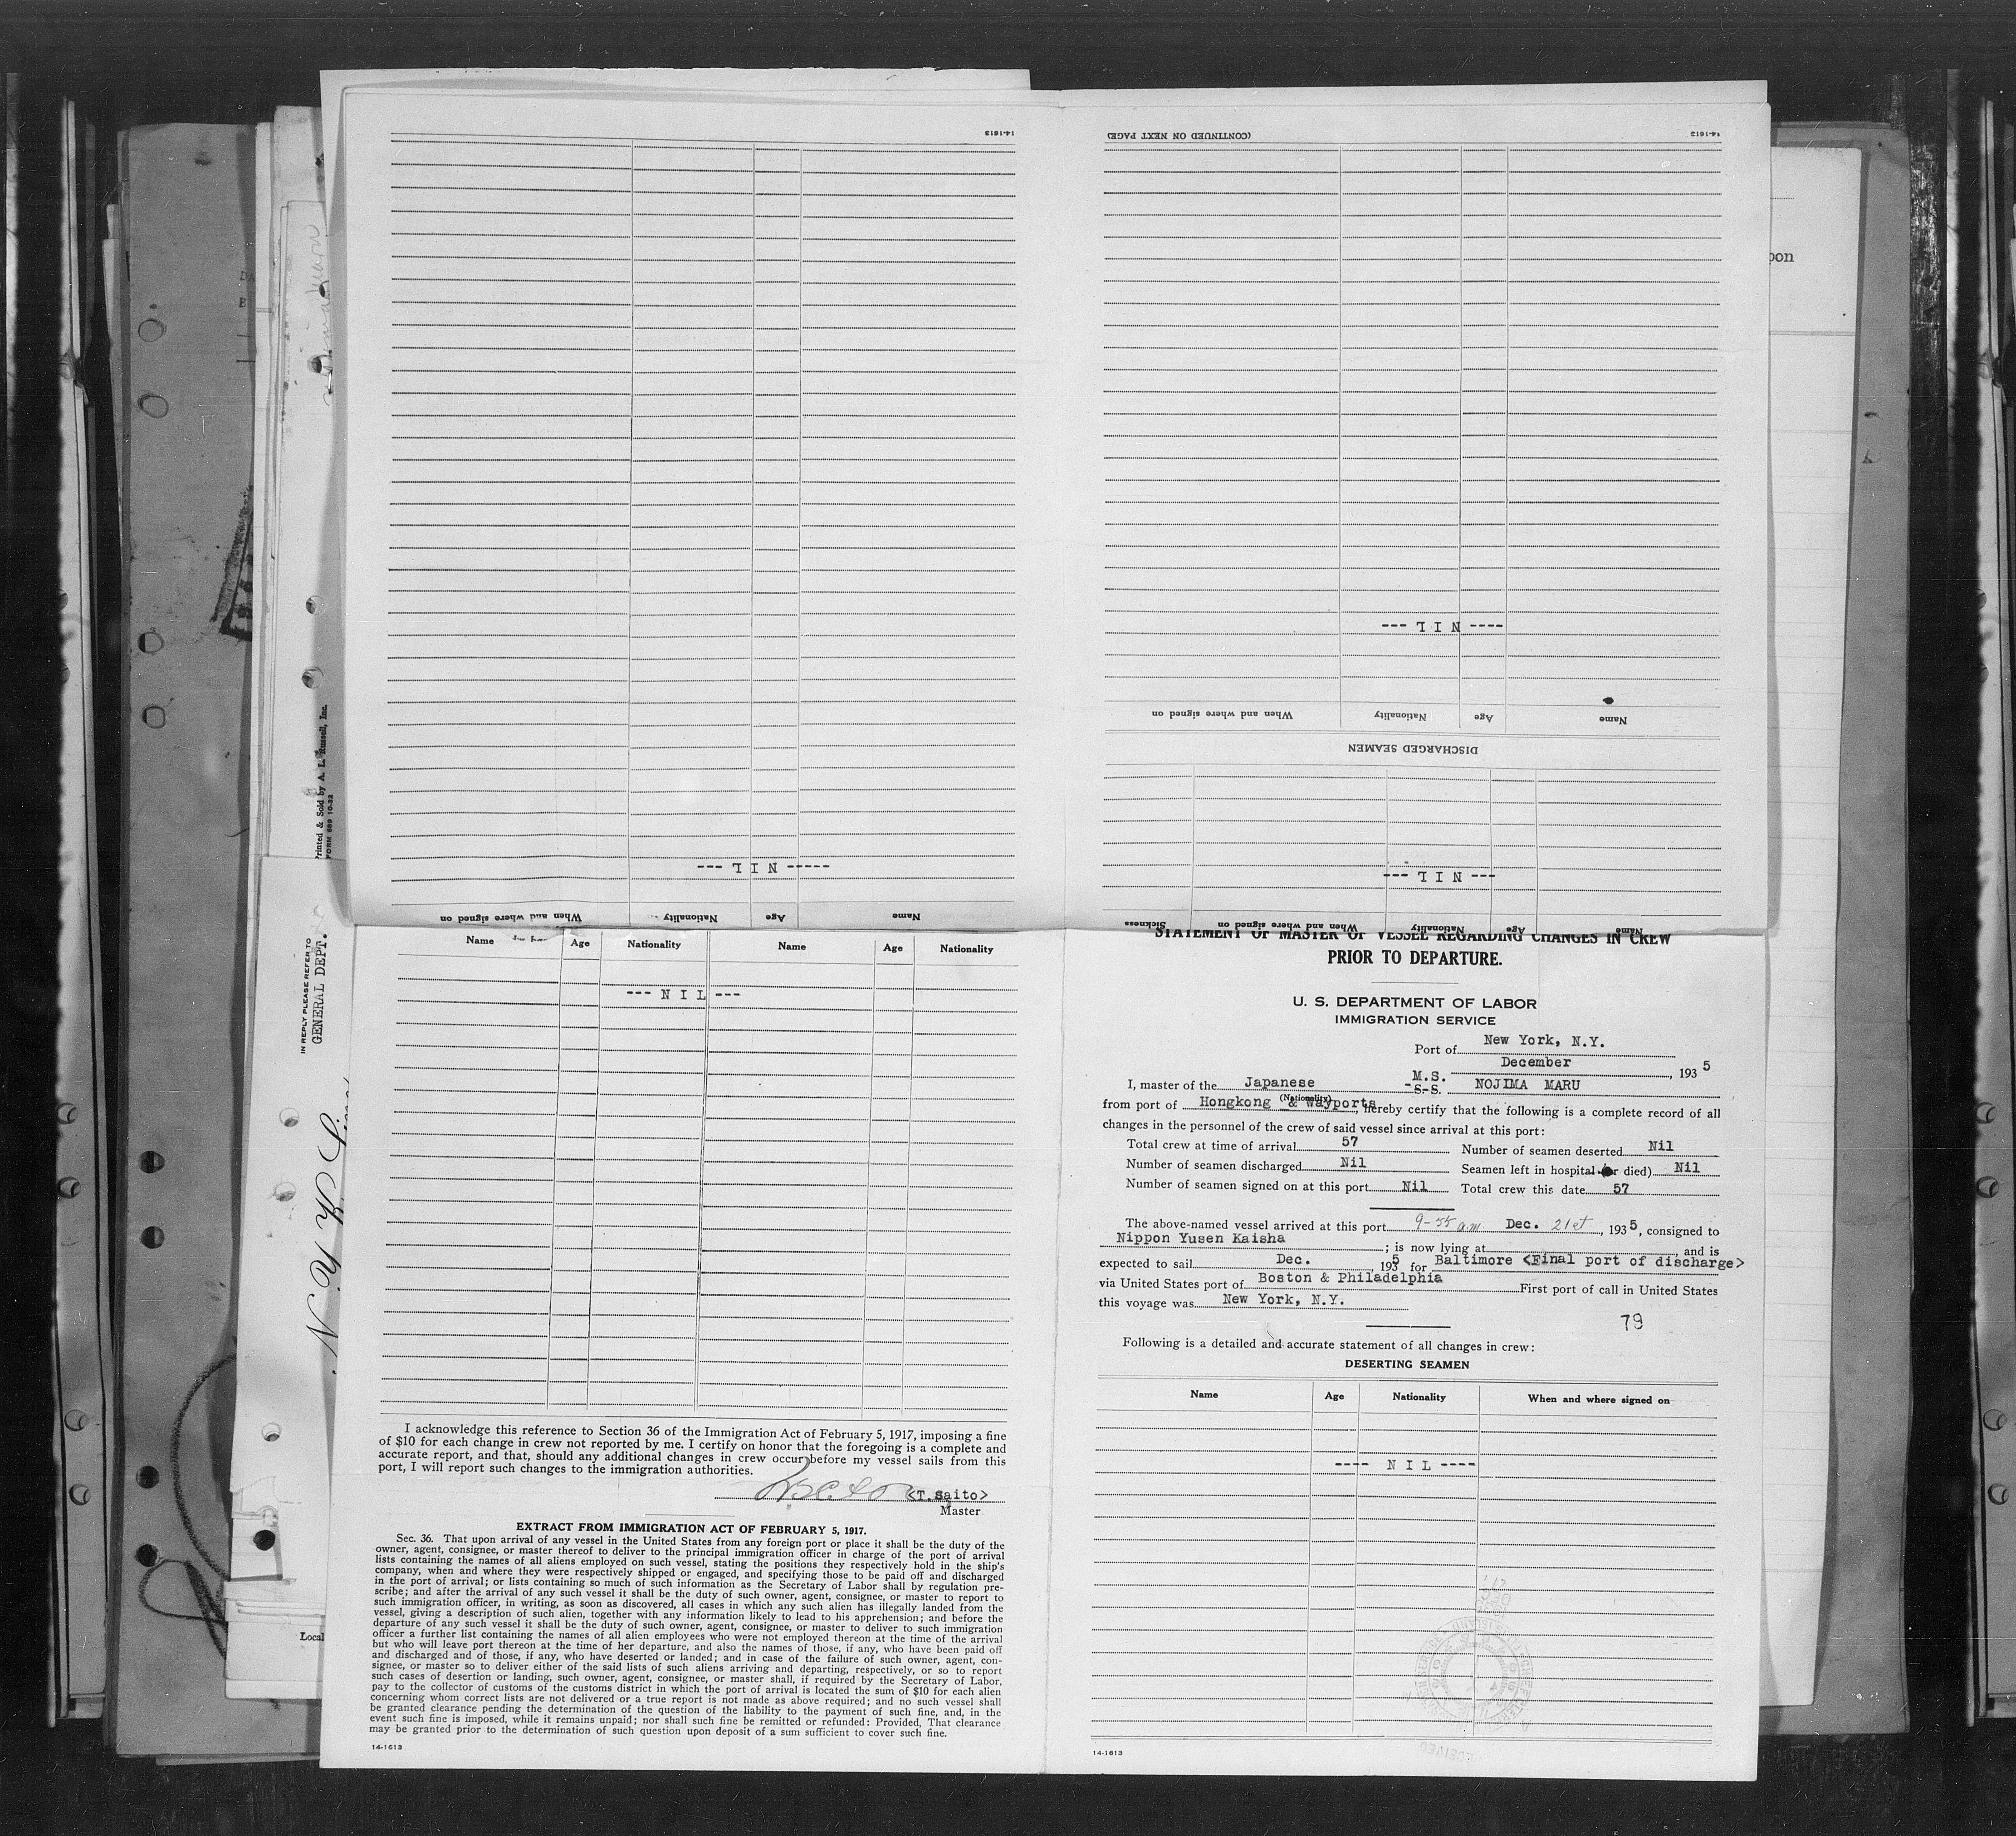 14-1613
(CONTINUED ON NEXT PAGE)
14-1613
--- N I L ----
Name
Age
Nationality
When and where signed on
DISCHARGED SEAMEN
--- N I L ---
----- N I L ---
Name
Age
Nationality
When and where signed on
Name
Age
Nationality
When and where signed on
Sickness
Name
Age
Nationality
Name
Age
Nationality
--- N I L ---
I acknowledge this reference to Section 36 of the Immigration Act of February 5, 1917, imposing a fine
of $10 for each change in crew not reported by me. I certify on honor that the foregoing is a complete and
accurate report, and that, should any additional changes in crew occur before my vessel sails from this
port, I will report such changes to the immigration authorities.
<T. Saito>
Master
EXTRACT FROM IMMIGRATION ACT OF FEBRUARY 5, 1917.
Sec. 36. That upon arrival of any vessel in the United States from any foreign port or place it shall be the duty of the
owner, agent, consignee, or master thereof to deliver to the principal immigration officer in charge of the port of arrival
lists containing the names of all aliens employed on such vessel, stating the positions they respectively hold in the ship's
company, when and where they were respectively shipped or engaged, and specifying those to be paid off and discharged
in the port of arrival; or lists containing so much of such information as the Secretary of Labor shall by regulation pre-
scribe; and after the arrival of any such vessel it shall be the duty of such owner, agent, consignee, or master to report to
such immigration officer, in writing, as soon as discovered, all cases in which any such alien has illegally landed from the
vessel, giving a description of such alien, together with any information likely to lead to his apprehension; and before the
departure of any such vessel it shall be the duty of such owner, agent, consignee, or master to deliver to such immigration
officer a further list containing the names of all alien employees who were not employed thereon at the time of the arrival
but who will leave port thereon at the time of her departure, and also the names of those, if any, who have been paid off
and discharged and of those, if any, who have deserted or landed; and in case of the failure of such owner, agent, con-
signee, or master so to deliver either of the said lists of such aliens arriving and departing, respectively, or so to report
such cases of desertion or landing, such owner, agent, consignee, or master shall, if required by the Secretary of Labor,
pay to the collector of customs of the customs district in which the port of arrival is located the sum of $10 for each alien
concerning whom correct lists are not delivered or a true report is not made as above required; and no such vessel shall
be granted clearance pending the determination of the question of the liability to the payment of such fine, and, in the
event such fine is imposed, while it remains unpaid; nor shall such fine be remitted or refunded: Provided, That clearance
may be granted prior to the determination of such question upon deposit of a sum sufficient to cover such fine.
14-1613
STATEMENT OF MASTER OF VESSEL REGARDING CHANGES IN CREW
PRIOR TO DEPARTURE.
U. S. DEPARTMENT OF LABOR
IMMIGRATION SERVICE
Port of New York, N.Y.
December, 1935
I, master of the Japanese M.S. S.S. NOJIMA MARU
(Nationality)
from port of Hongkong & wayports, hereby certify that the following is a complete record of all
changes in the personnel of the crew of said vessel since arrival at this port:
Total crew at time of arrival 57 Number of seamen deserted Nil
Number of seamen discharged Nil Seamen left in hospital (or died) Nil
Number of seamen signed on at this port Nil Total crew this date 57
The above-named vessel arrived at this port 9-55 a.m. Dec. 21st, 1935, consigned to
Nippon Yusen Kaisha; is now lying at , and is
expected to sail Dec., 1935 for Baltimore <Final port of discharge>
via United States port of Boston & Philadelphia First port of call in United States
this voyage was New York, N.Y.
79
Following is a detailed and accurate statement of all changes in crew:
DESERTING SEAMEN
Name
Age
Nationality
When and where signed on
---- N I L ----
RECEIVED
14-1613
Printed & Sold by A. L. Russell, Inc.
FORM 689 10-33
IN REPLY PLEASE REFER TO
GENERAL DEPT.
N Y K Line
Local
pon